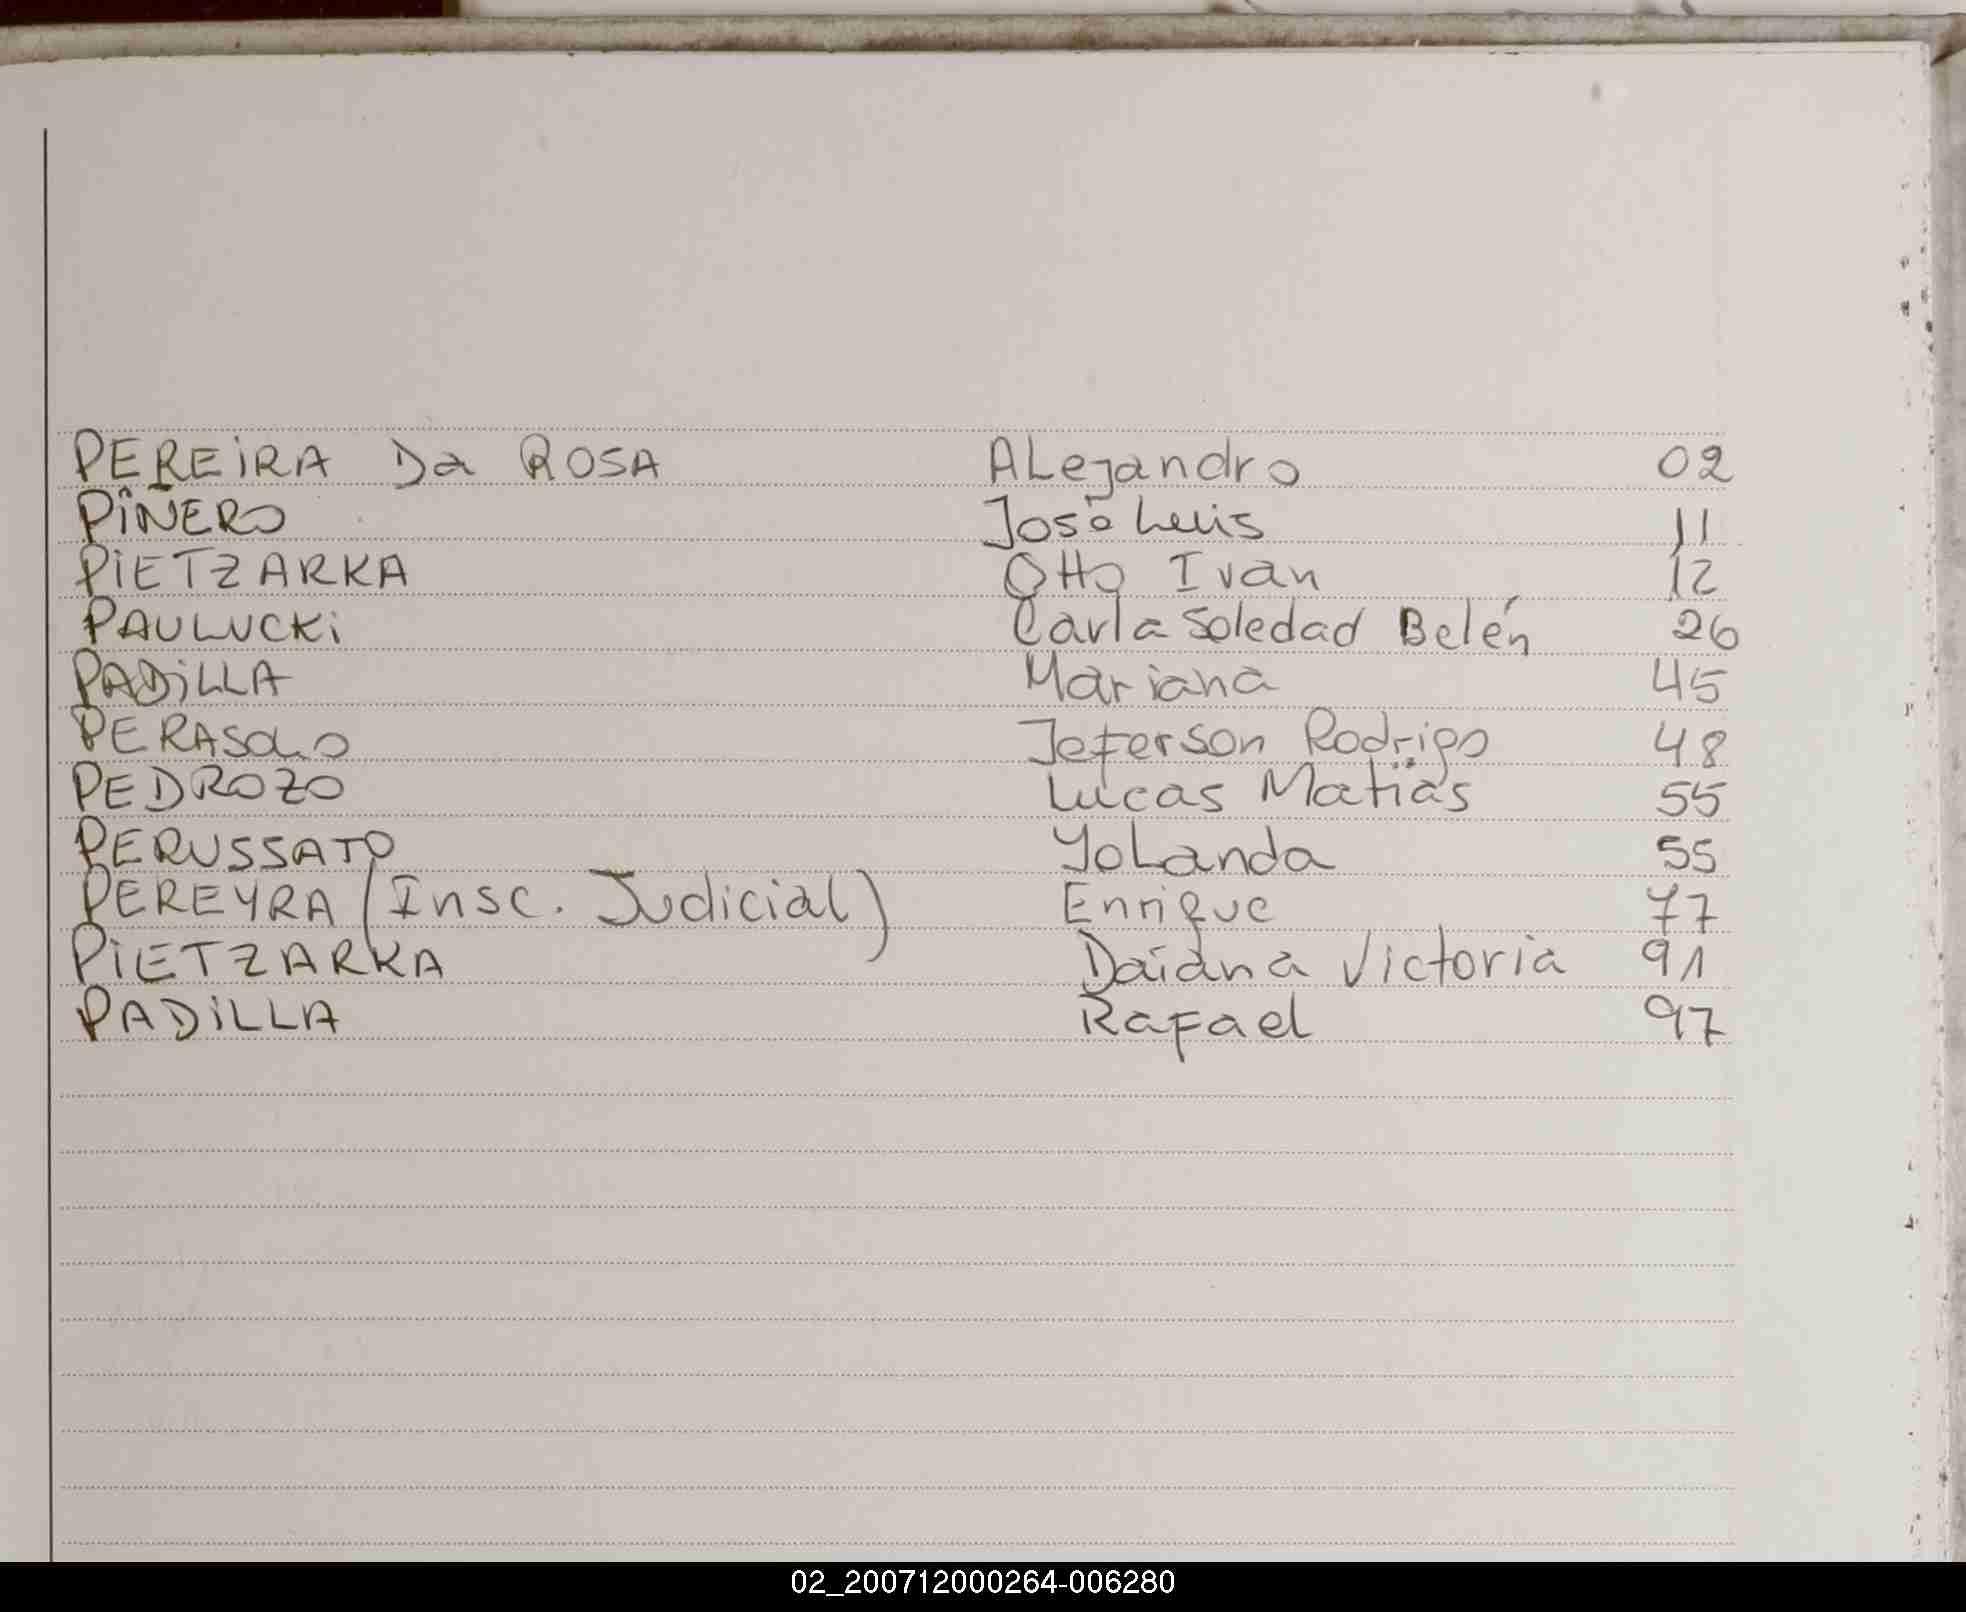 PEREIRA Da ROSA ALejandro 02
PIÑERO José Luis 11
PIETZARKA Otto Ivan 12
PAULUCKI Carla Soledad Belén 26
PADILLA Mariana 45
PERASOLO Jeferson Rodrigo 48
PEDROZO Lucas Matías 55
PERUSSATO YoLanda 55
PEREYRA (Insc. Judicial) Enrique 77
PIETZARKA Daiana Victoria 91
PADILLA Rafael 97
02_200712000264-006280